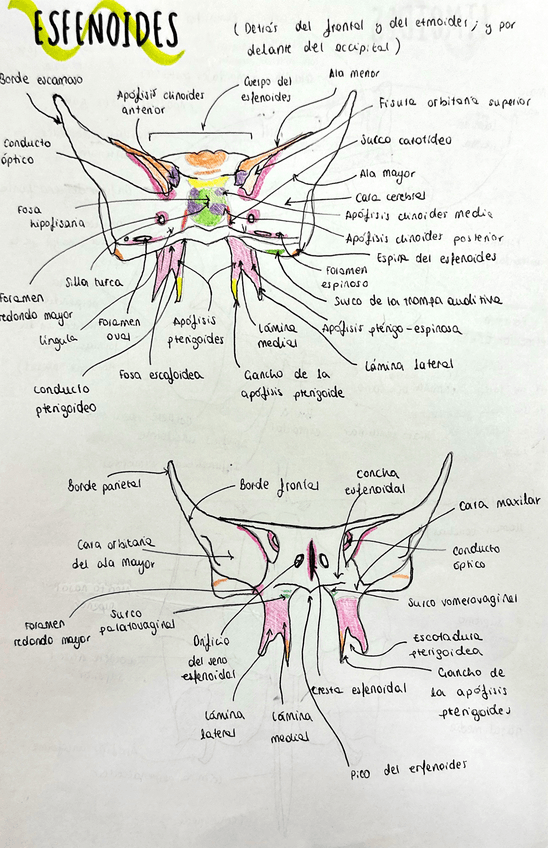 ESFENOIDES
(Detrás del frontal y del etmoides, y por
delante del occipital)
Borde escamoso
Apófisis clinoides
anterior
Cuerpo del
esfenoides
Ala menor
Fisura orbitaria superior
Conducto
óptico
Surco carotídeo
Ala mayor
Cara cerebral
Fosa
hipofisaria
Apófisis clinoides media
Apófisis clinoides posterior
Espina del esfenoides
Silla turca
Foramen
espinoso
Foramen
redondo mayor
Surco de la trompa auditiva
língula
Foramen
oval
Apófisis
pterigoides
Lámina
medial
Apófisis pterigo-espinosa
Lámina lateral
Conducto
pterigoideo
Fosa escafoidea
Gancho de la
apófisis pterigoide
Borde parietal
Borde frontal
Concha
esfenoidal
Cara maxilar
Cara orbitaria
del ala mayor
Conducto
óptico
Foramen
redondo mayor
Surco
palatovaginal
Surco vomerovaginal
Orificio
del seno
esfenoidal
Escotadura
pterigoidea
Cresta esfenoidal
Gancho de
la apófisis
pterigoides
Lámina
lateral
Lámina
medial
Pico del esfenoides